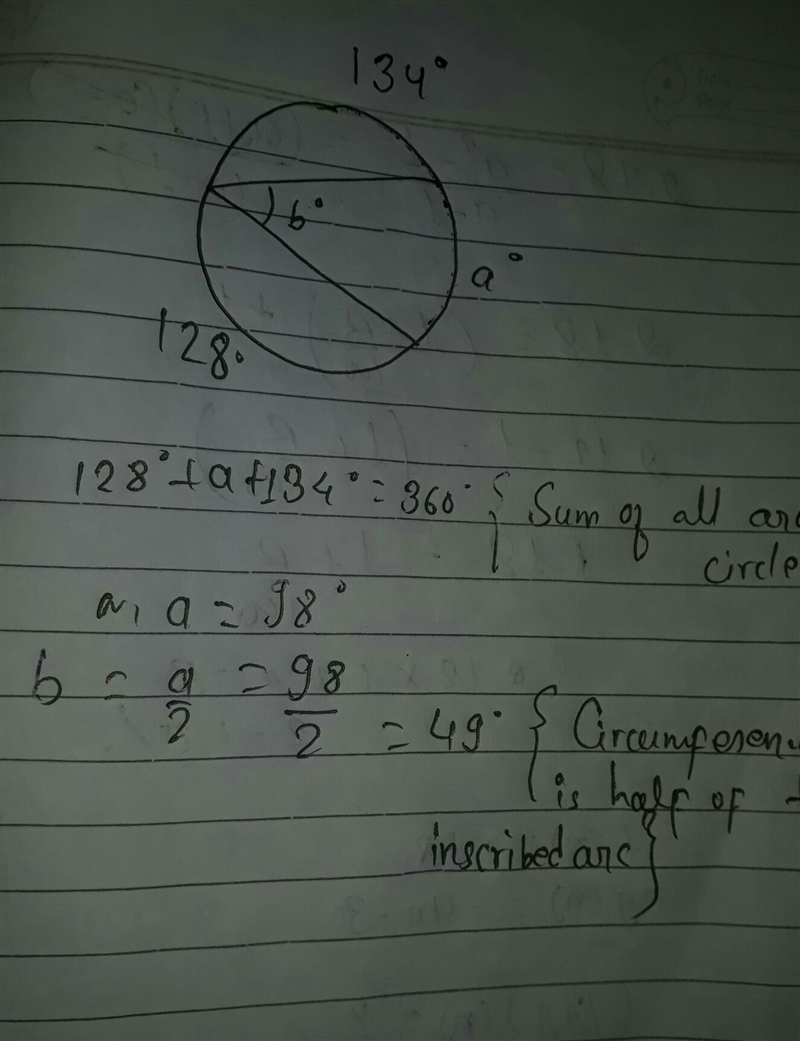 134°
b°
a°
128°
128° + a + 134° = 360° { Sum of all
circle
a = 98°
b = a/2 = 98/2 = 49° { 
is half of
inscribed arc }